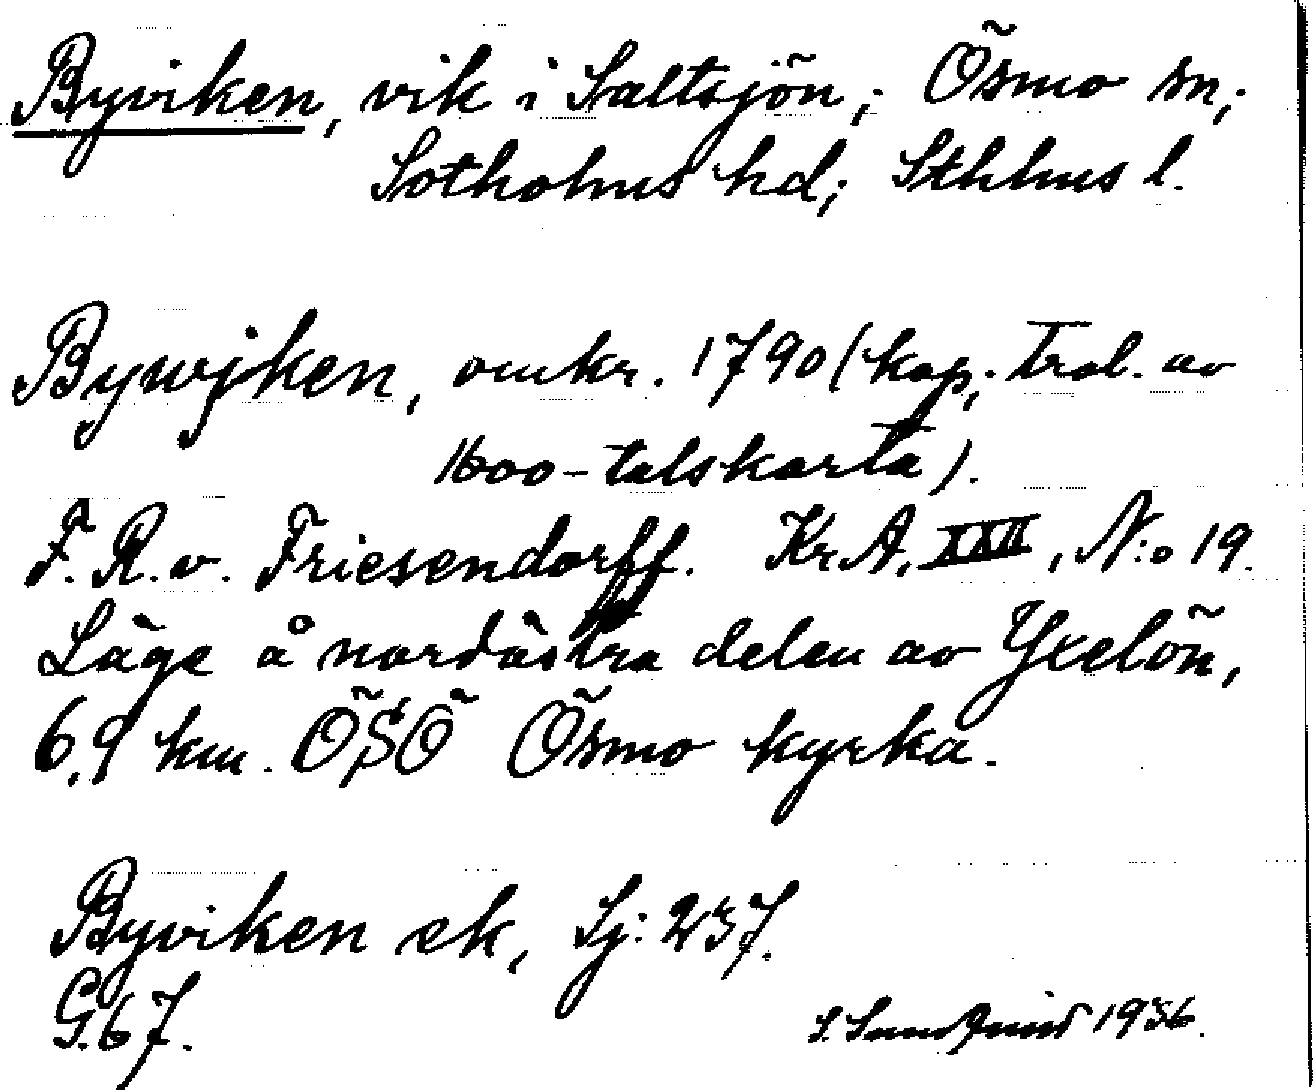 Byviken, vik i Saltsjön; Ösmo sn;
Sotholms hd; Sthlms l.
Bywjken, omkr. 1790 (kop; trol. av
1600-talskarta).
F. R. v. Friesendorff. KrA, XXII, N:o 19.
Läge å nordöstra delen av Yxelön,
6,9 km. ÖSÖ Ösmo kyrka.
Byviken ek, Sj: 237.
G. 67.
1936.